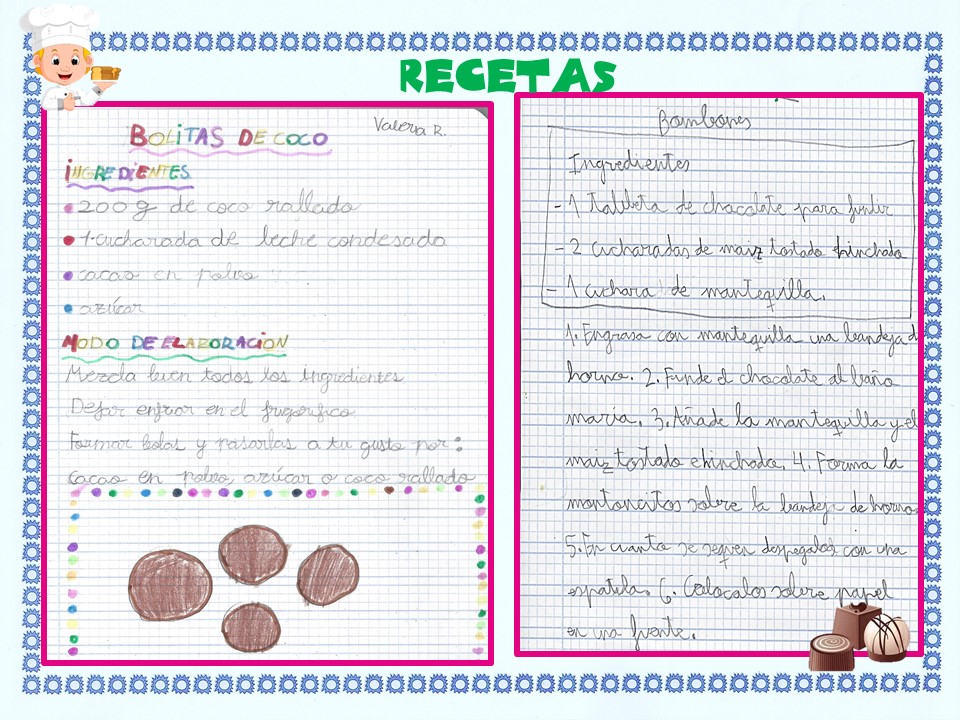 RECETAS
BOLITAS DE COCO
Valeria R.
INGREDIENTES
• 200 g de coco rallado
• 1 cucharada de leche condesada
• cacao en polvo
• azúcar
MODO DE ELABORACIÓN
Mezcla buen todos los ingredientes
Dejar enfriar en el frigorifico
Formar bolas y pasarlas a tu gusto por:
cacao en polvo, azúcar o coco rallado
Bombones
Ingredientes
- 1 tableta de chocolate para fundir
- 2 cucharadas de maiz tostado e hinchado
- 1 cuchara de mantequilla.
1. Engrasa con mantequilla una bandeja d
horno. 2. Funde el chocolate al baño
maria. 3. Añade la mantequilla y el
maiz tostado e hinchado. 4. Forma la
montoncitos sobre la bandeja de horno
5. En cuanto se sequen despegalos con una
espatula. 6. Colocalos sobre papel
en una fuente.